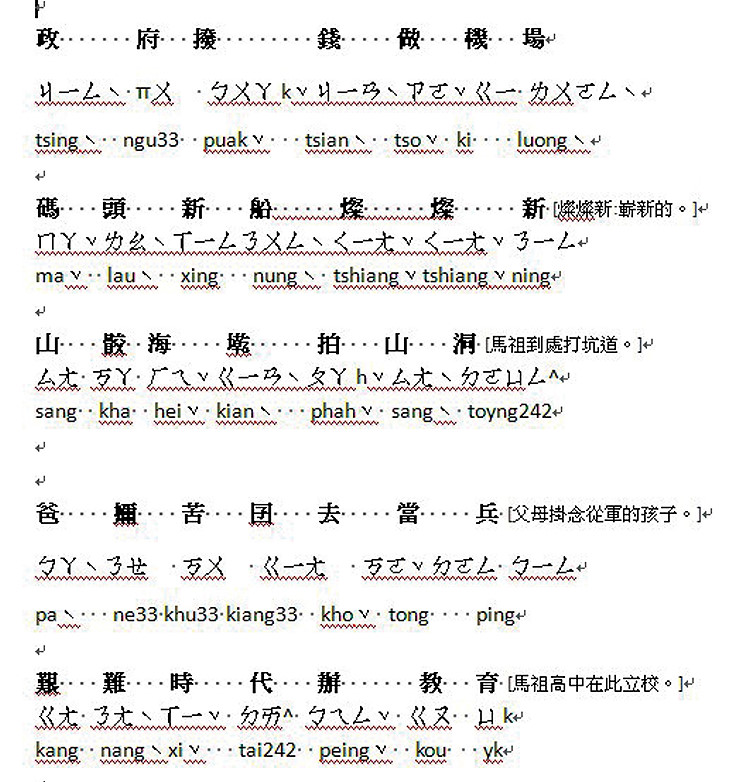 政 府 撥 錢 做 機 場
ㄐㄧㄥˋ πㄨ ㄅㄨㄚ kˇㄐㄧㄢˋㄗㄛˇㄍㄧ ㄌㄨㄛㄥˋ
tsingˋ ngu33 puakˇ tsianˋ tsoˇ ki luongˋ
碼 頭 新 船 燦 燦 新 [燦燦新:嶄新的。]
ㄇㄚˇㄌㄠˋㄒㄧㄥㄋㄨㄥˋㄑㄧㄤˇㄑㄧㄤˇㄋㄧㄥ
maˇ lauˋ xing nungˋ tshiangˇtshiangˇning
山 骹 海 墘 拍 山 洞 [馬祖到處打坑道。]
ㄙㄤ ㄎㄚ ㄏㄟˇㄍㄧㄢˋㄆㄚ hˇㄙㄤˋㄉㄛㄩㄥ^
sang kha heiˇ kianˋ phahˇ sangˋ toyng242
爸 嬭 苦 囝 去 當 兵 [父母掛念從軍的孩子。]
ㄅㄚˋㄋㄝ ㄎㄨ ㄍㄧㄤ ㄎㄛˇㄉㄛㄥ ㄅㄧㄥ
paˋ ne33 khu33 kiang33 khoˇ tong ping
艱 難 時 代 辦 教 育 [馬祖高中在此立校。]
ㄍㄤ ㄋㄤˋㄒㄧˇ ㄉㄞ^ ㄅㄟㄥˇ ㄍㄡ ㄩk
kang nangˋxiˇ tai242 peingˇ kou yk